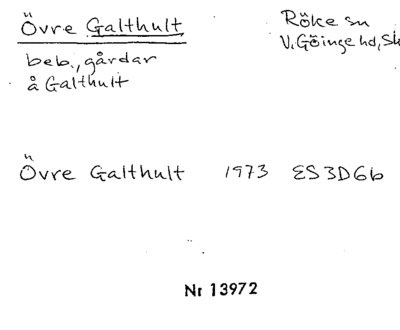 Övre Galthult
Röke sn
V. Göinge hd, Sk
beb., gårdar
å Galthult
Övre Galthult 1973 ES3D6b
Nr 13972